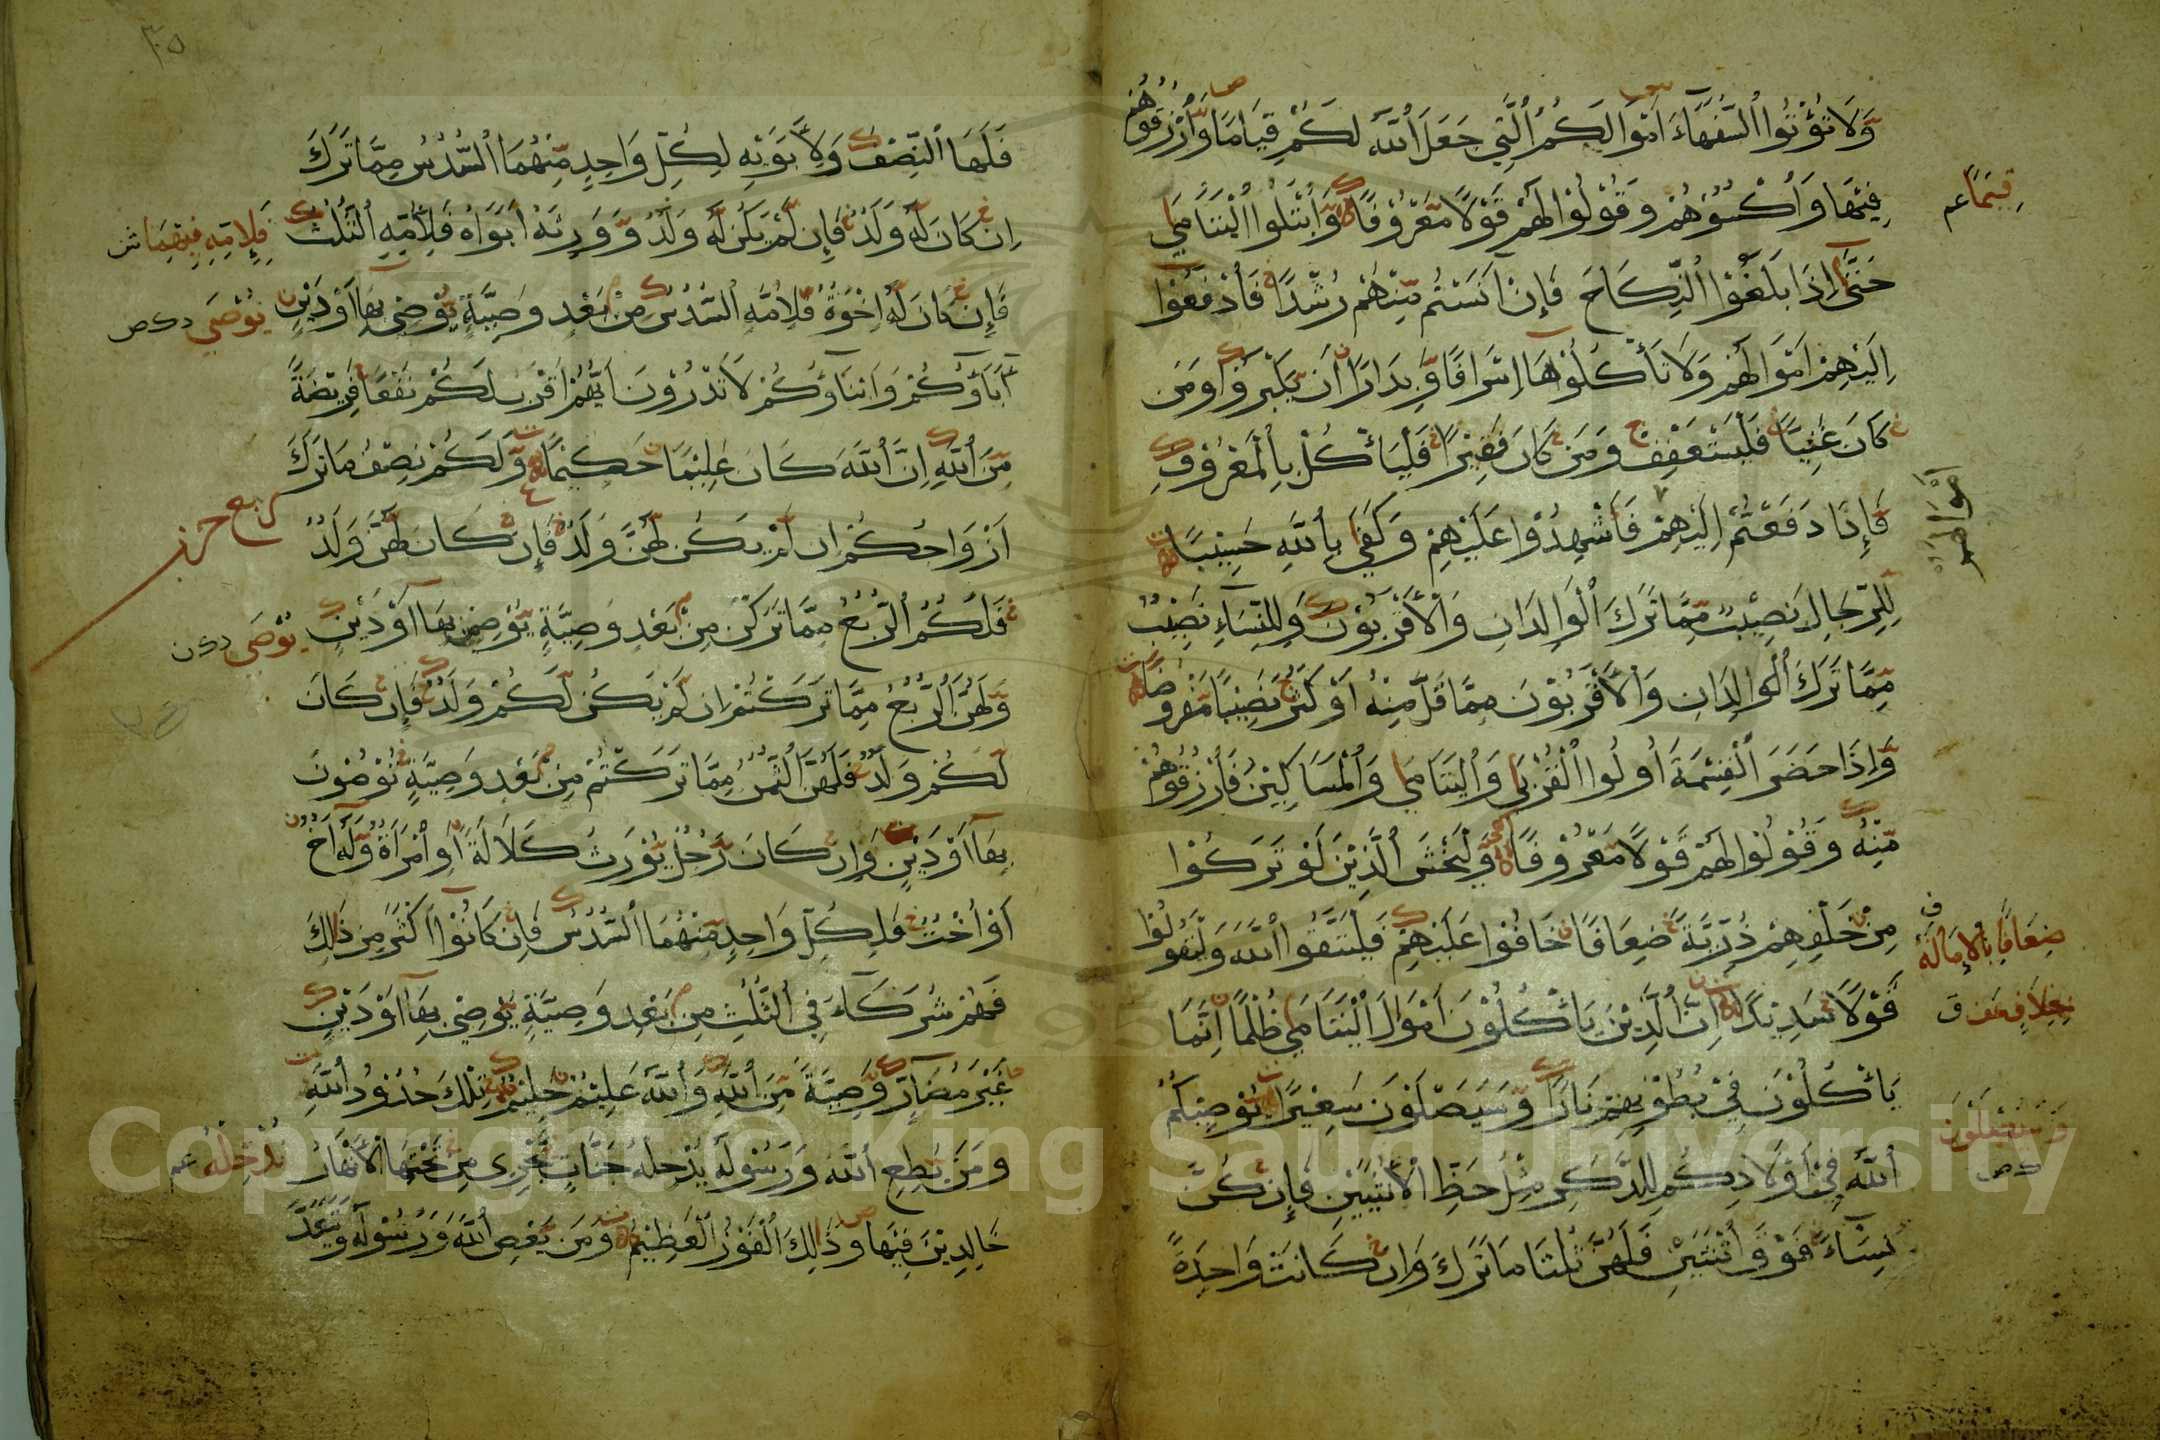 وَلَا تُؤْتُوا السُّفَهَاءَ اَمْوَالَكُمُ الَّتِي جَعَلَ اللَّهُ لَكُمْ قِيَامًا وَّارْزُقُوهُمْ
فِيْهَا وَاكْسُوْهُمْ وَقُوْلُوْا لَهُمْ قَوْلًا مَّعْرُوْفًا وَابْتَلُوا الْيَتَامَى
قِيَمًا عم
حَتَّى اِذَا بَلَغُوْا النِّكَاحَ فَاِنْ اٰنَسْتُمْ مِّنْهُمْ رُشْدًا فَادْفَعُوْا
اِلَيْهِمْ اَمْوَالَهُمْ وَلَا تَأْكُلُوْهَا اِسْرَافًا وَّبِدَارًا اَنْ يَّكْبَرُوْا وَمَنْ
كَانَ غَنِيًّا فَلْيَسْتَعْفِفْ وَمَنْ كَانَ فَقِيْرًا فَلْيَأْكُلْ بِالْمَعْرُوْفِ
فَاِذَا دَفَعْتُمْ اِلَيْهِمْ فَاَشْهِدُوْا عَلَيْهِمْ وَكَفَى بِاللَّهِ حَسِيْبًا
اَمْوَالَهُمْ
لِلرِّجَالِ نَصِيْبٌ مِّمَّا تَرَكَ الْوَالِدَانِ وَالْاَقْرَبُوْنَ وَلِلنِّسَاءِ نَصِيْبٌ
مِّمَّا تَرَكَ الْوَالِدَانِ وَالْاَقْرَبُوْنَ مِمَّا قَلَّ مِنْهُ اَوْ كَثُرَ نَصِيْبًا مَّفْرُوْضًا
وَاِذَا حَضَرَ الْقِسْمَةَ اُولُوا الْقُرْبَى وَالْيَتَامَى وَالْمَسَاكِيْنُ فَارْزُقُوْهُمْ
مِّنْهُ وَقُوْلُوْا لَهُمْ قَوْلًا مَّعْرُوْفًا وَلْيَخْشَ الَّذِيْنَ لَوْ تَرَكُوْا
مِنْ خَلْفِهِمْ ذُرِّيَّةً ضِعَافًا خَافُوْا عَلَيْهِمْ فَلْيَتَّقُوا اللَّهَ وَلْيَقُوْلُوْا
ضِعَافًا بِالْاِمَالَةِ
قَوْلًا سَدِيْدًا اِنَّ الَّذِيْنَ يَاْكُلُوْنَ اَمْوَالَ الْيَتَامَى ظُلْمًا اِنَّمَا
بِخِلَافٍ عَنْ ق
يَاْكُلُوْنَ فِيْ بُطُوْنِهِمْ نَارًا وَّسَيَصْلَوْنَ سَعِيْرًا يُوْصِيْكُمُ
وَسَيُصْلَوْنَ
اللَّهُ فِيْ اَوْلَادِكُمْ لِلذَّكَرِ مِثْلُ حَظِّ الْاُنْثَيَيْنِ فَاِنْ كُنَّ
نِسَاءً فَوْقَ اثْنَتَيْنِ فَلَهُنَّ ثُلُثَا مَا تَرَكَ وَاِنْ كَانَتْ وَاحِدَةً
فَلَهَا النِّصْفُ وَلِاَبَوَيْهِ لِكُلِّ وَاحِدٍ مِّنْهُمَا السُّدُسُ مِمَّا تَرَكَ
اِنْ كَانَ لَهُ وَلَدٌ فَاِنْ لَّمْ يَكُنْ لَّهُ وَلَدٌ وَّوَرِثَهُ اَبَوَاهُ فَلِاُمِّهِ الثُّلُثُ
فَلِاِمِّهِ فِيْهِمَا ش
فَاِنْ كَانَ لَهُ اِخْوَةٌ فَلِاُمِّهِ السُّدُسُ مِنْ بَعْدِ وَصِيَّةٍ يُّوْصِيْ بِهَا اَوْ دَيْنٍ
يُوْصَى د ك ص
اٰبَاؤُكُمْ وَاَبْنَاؤُكُمْ لَا تَدْرُوْنَ اَيُّهُمْ اَقْرَبُ لَكُمْ نَفْعًا فَرِيْضَةً
مِّنَ اللَّهِ اِنَّ اللَّهَ كَانَ عَلِيْمًا حَكِيْمًا وَّلَكُمْ نِصْفُ مَا تَرَكَ
ربع حزب
اَزْوَاجُكُمْ اِنْ لَّمْ يَكُنْ لَّهُنَّ وَلَدٌ فَاِنْ كَانَ لَهُنَّ وَلَدٌ
فَلَكُمُ الرُّبُعُ مِمَّا تَرَكْنَ مِنْ بَعْدِ وَصِيَّةٍ يُّوْصِيْنَ بِهَا اَوْ دَيْنٍ
يُوْصَى د ك ن
وَلَهُنَّ الرُّبُعُ مِمَّا تَرَكْتُمْ اِنْ لَّمْ يَكُنْ لَّكُمْ وَلَدٌ فَاِنْ كَانَ
لَكُمْ وَلَدٌ فَلَهُنَّ الثُّمُنُ مِمَّا تَرَكْتُمْ مِنْ بَعْدِ وَصِيَّةٍ تُوْصُوْنَ
بِهَا اَوْ دَيْنٍ وَاِنْ كَانَ رَجُلٌ يُّوْرَثُ كَلَالَةً اَوِ امْرَاَةٌ وَّلَهُ اَخٌ
اَوْ اُخْتٌ فَلِكُلِّ وَاحِدٍ مِّنْهُمَا السُّدُسُ فَاِنْ كَانُوْا اَكْثَرَ مِنْ ذٰلِكَ
فَهُمْ شُرَكَاءُ فِي الثُّلُثِ مِنْ بَعْدِ وَصِيَّةٍ يُّوْصِيْ بِهَا اَوْ دَيْنٍ
غَيْرَ مُضَارٍّ وَّصِيَّةً مِّنَ اللَّهِ وَاللَّهُ عَلِيْمٌ حَلِيْمٌ تِلْكَ حُدُوْدُ اللَّهِ
وَمَنْ يُّطِعِ اللَّهَ وَرَسُوْلَهُ يُدْخِلْهُ جَنَّاتٍ تَجْرِيْ مِنْ تَحْتِهَا الْاَنْهَارُ
نُدْخِلْهُ عم
خَالِدِيْنَ فِيْهَا وَذٰلِكَ الْفَوْزُ الْعَظِيْمُ وَمَنْ يَّعْصِ اللَّهَ وَرَسُوْلَهُ وَيَتَعَدَّ
Copyright © King Saud University